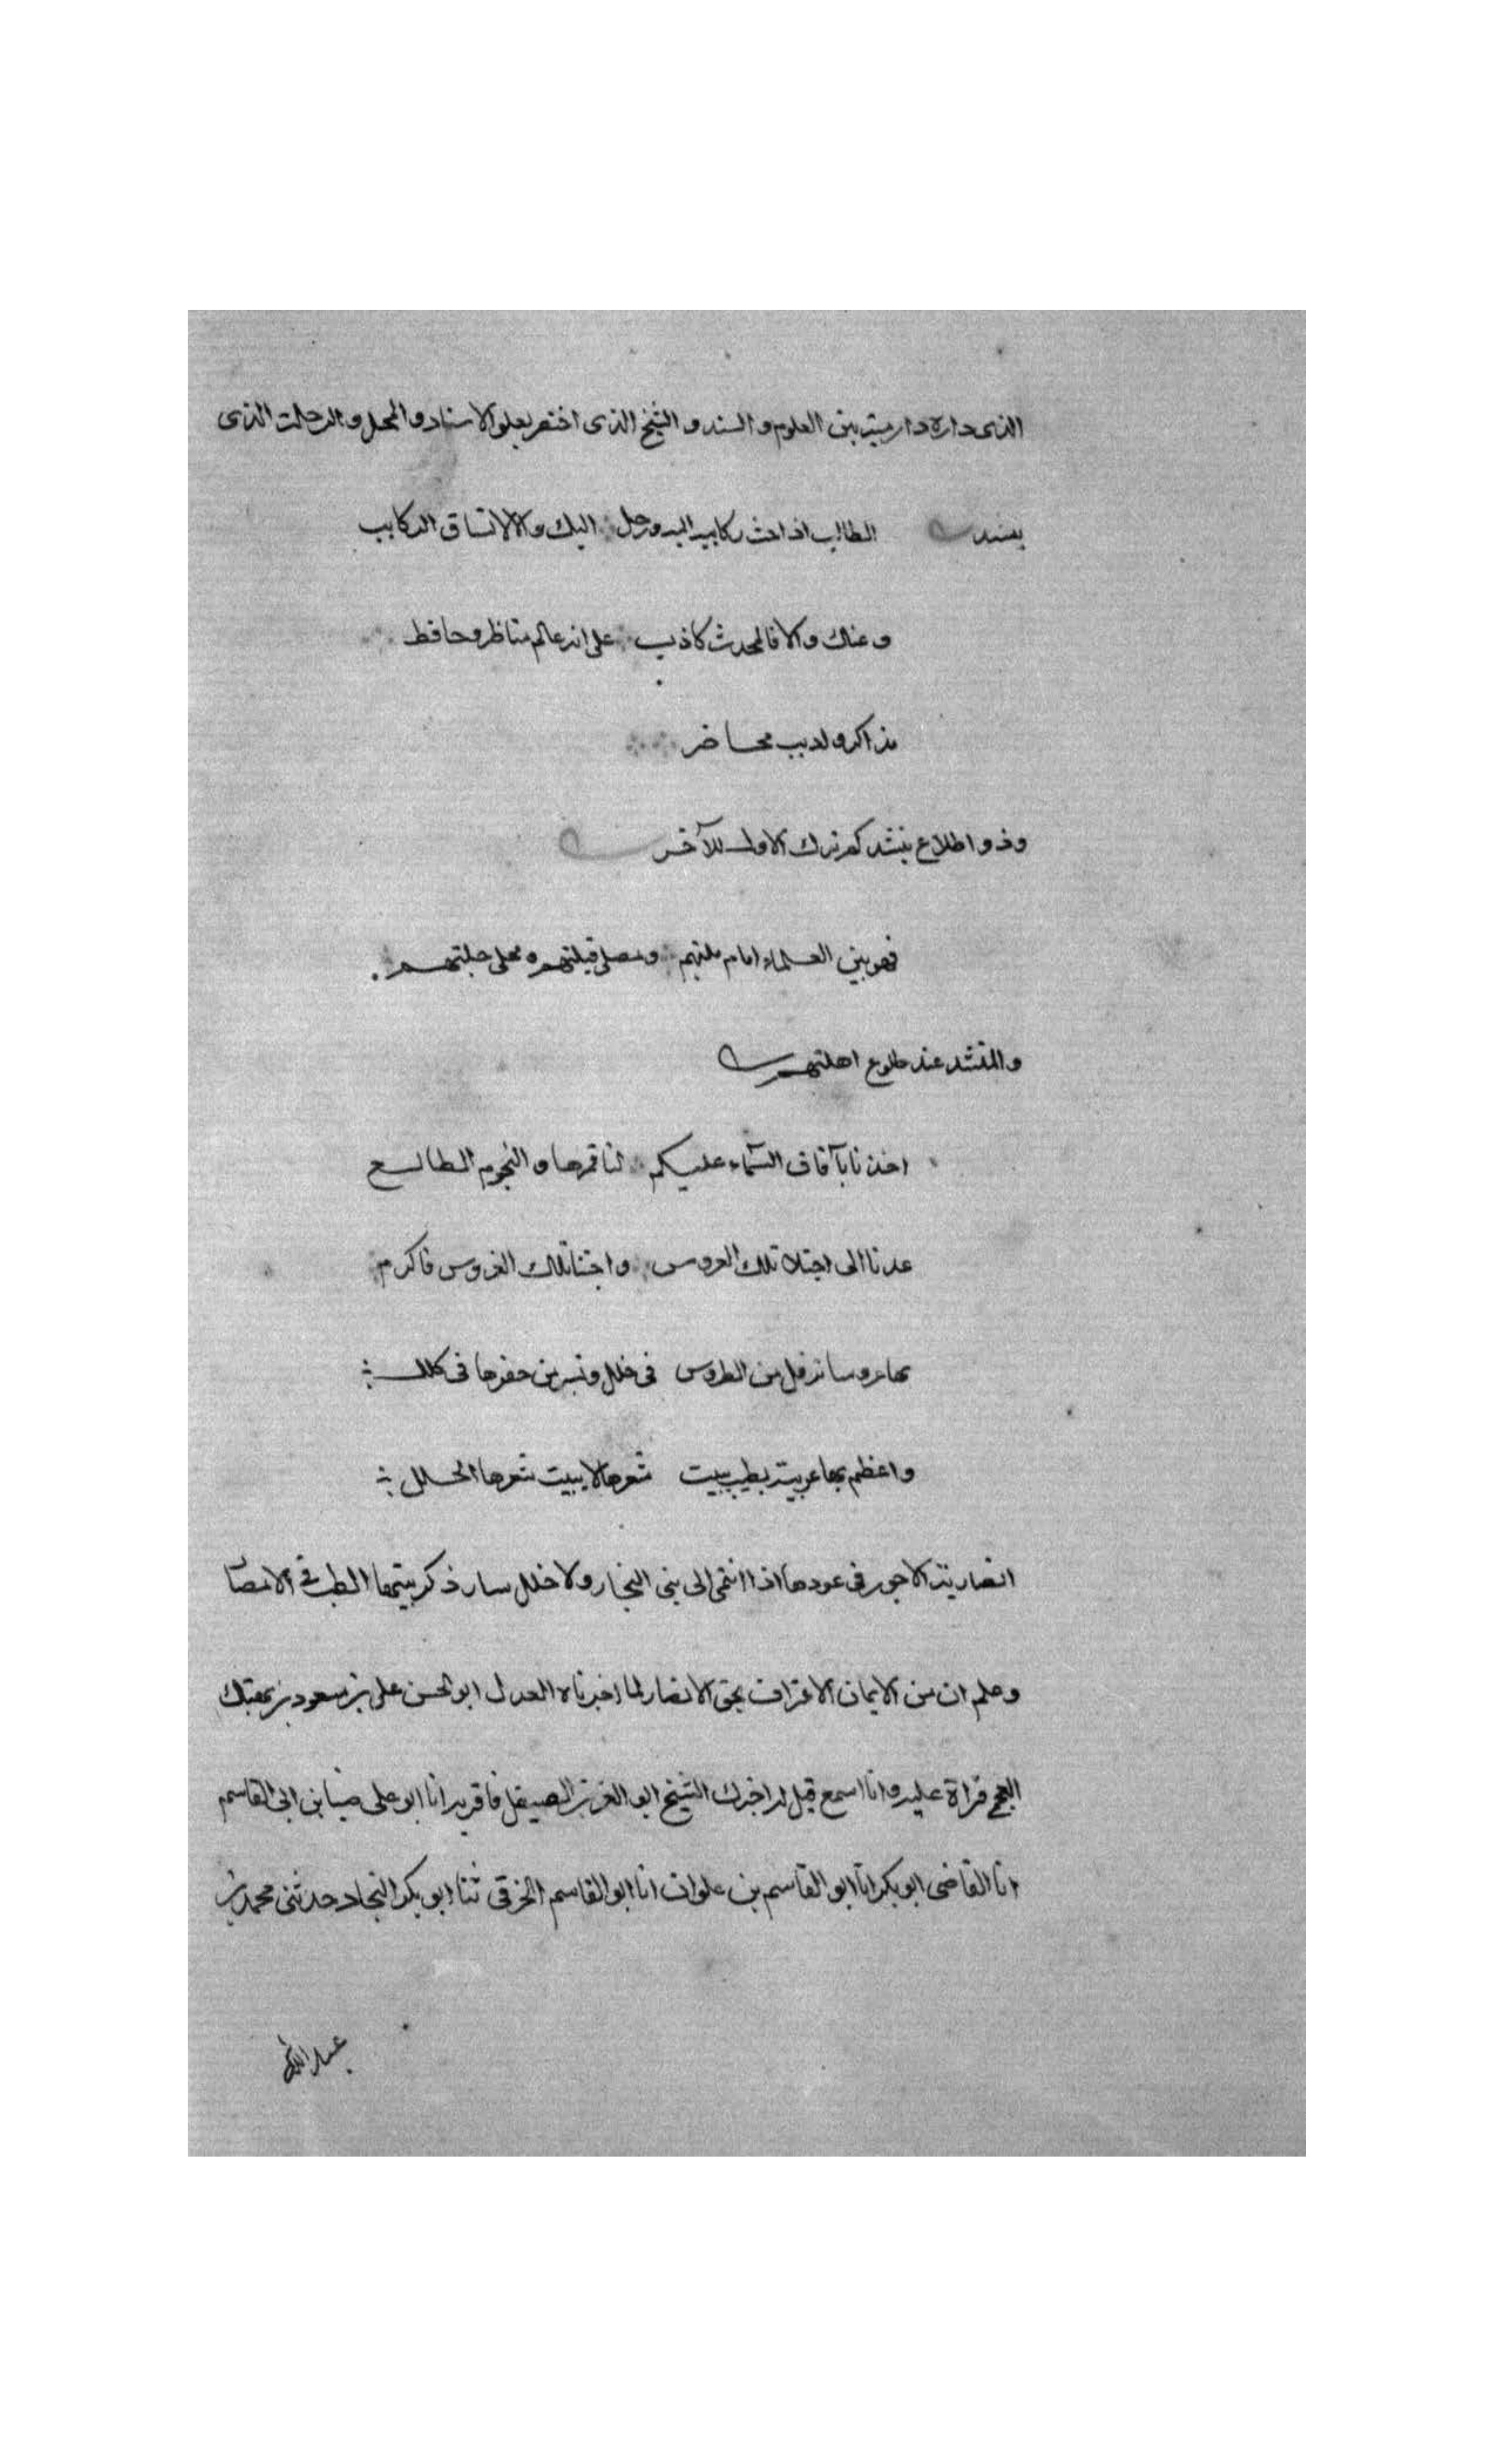 الذى داره دار مية بين العلوم والسند و الشيخ الذى اختص بعلو الاسناد و المحل و الرحلت الذى
ينشد الطالب اذا حث ركابه اليه ورحل اليك و الا لا تساق الركايب
و عنك و الا فالمحدث كاذب على انه عالم مناظر و حافظ
مذاكر و اديب محاضر
وذو اطلاع ينشد كم ترك الاول للآخر
فهو بين العلماء امام ملتهم و مصلى قبلتهم و محلى حلبتهم
والمنشد عند طلوع اهلتهم
اخذنا بآفاق السماء عليكم لنا قمرها و النجوم الطالع
عدنا الى اجتلا تلك العروس و اجتنا تلك الغروس فاكرم
بها عروسا ترفل من الطروس فى حلل و تسر من حضرها فى كلل
و اعظم بها عربية بطيب بيت شعرها لا يبيت شعرها الخلل
انصارية الاجور فى عودها اذا انتمى الى بنى النجار و لا خلل سار ذكر بيتها الطب فى الانصا
و علم ان من الايمان الاعتراف بحق الانصار لما اخبرناه العدل ابو الحسن على بن مسعود بن بهتك
العجمى قراة عليه و انا اسمع قيل له اخبرك الشيخ ابو العز بن الصيقل فاقر به انا ابو على ضيا بن ابى القاسم
انا القاضى ابو بكر انا ابو القاسم بن علوان انا ابو القاسم الخرقى ثنا ابو بكر النجاد حدثنى محمد بن
عبد الله